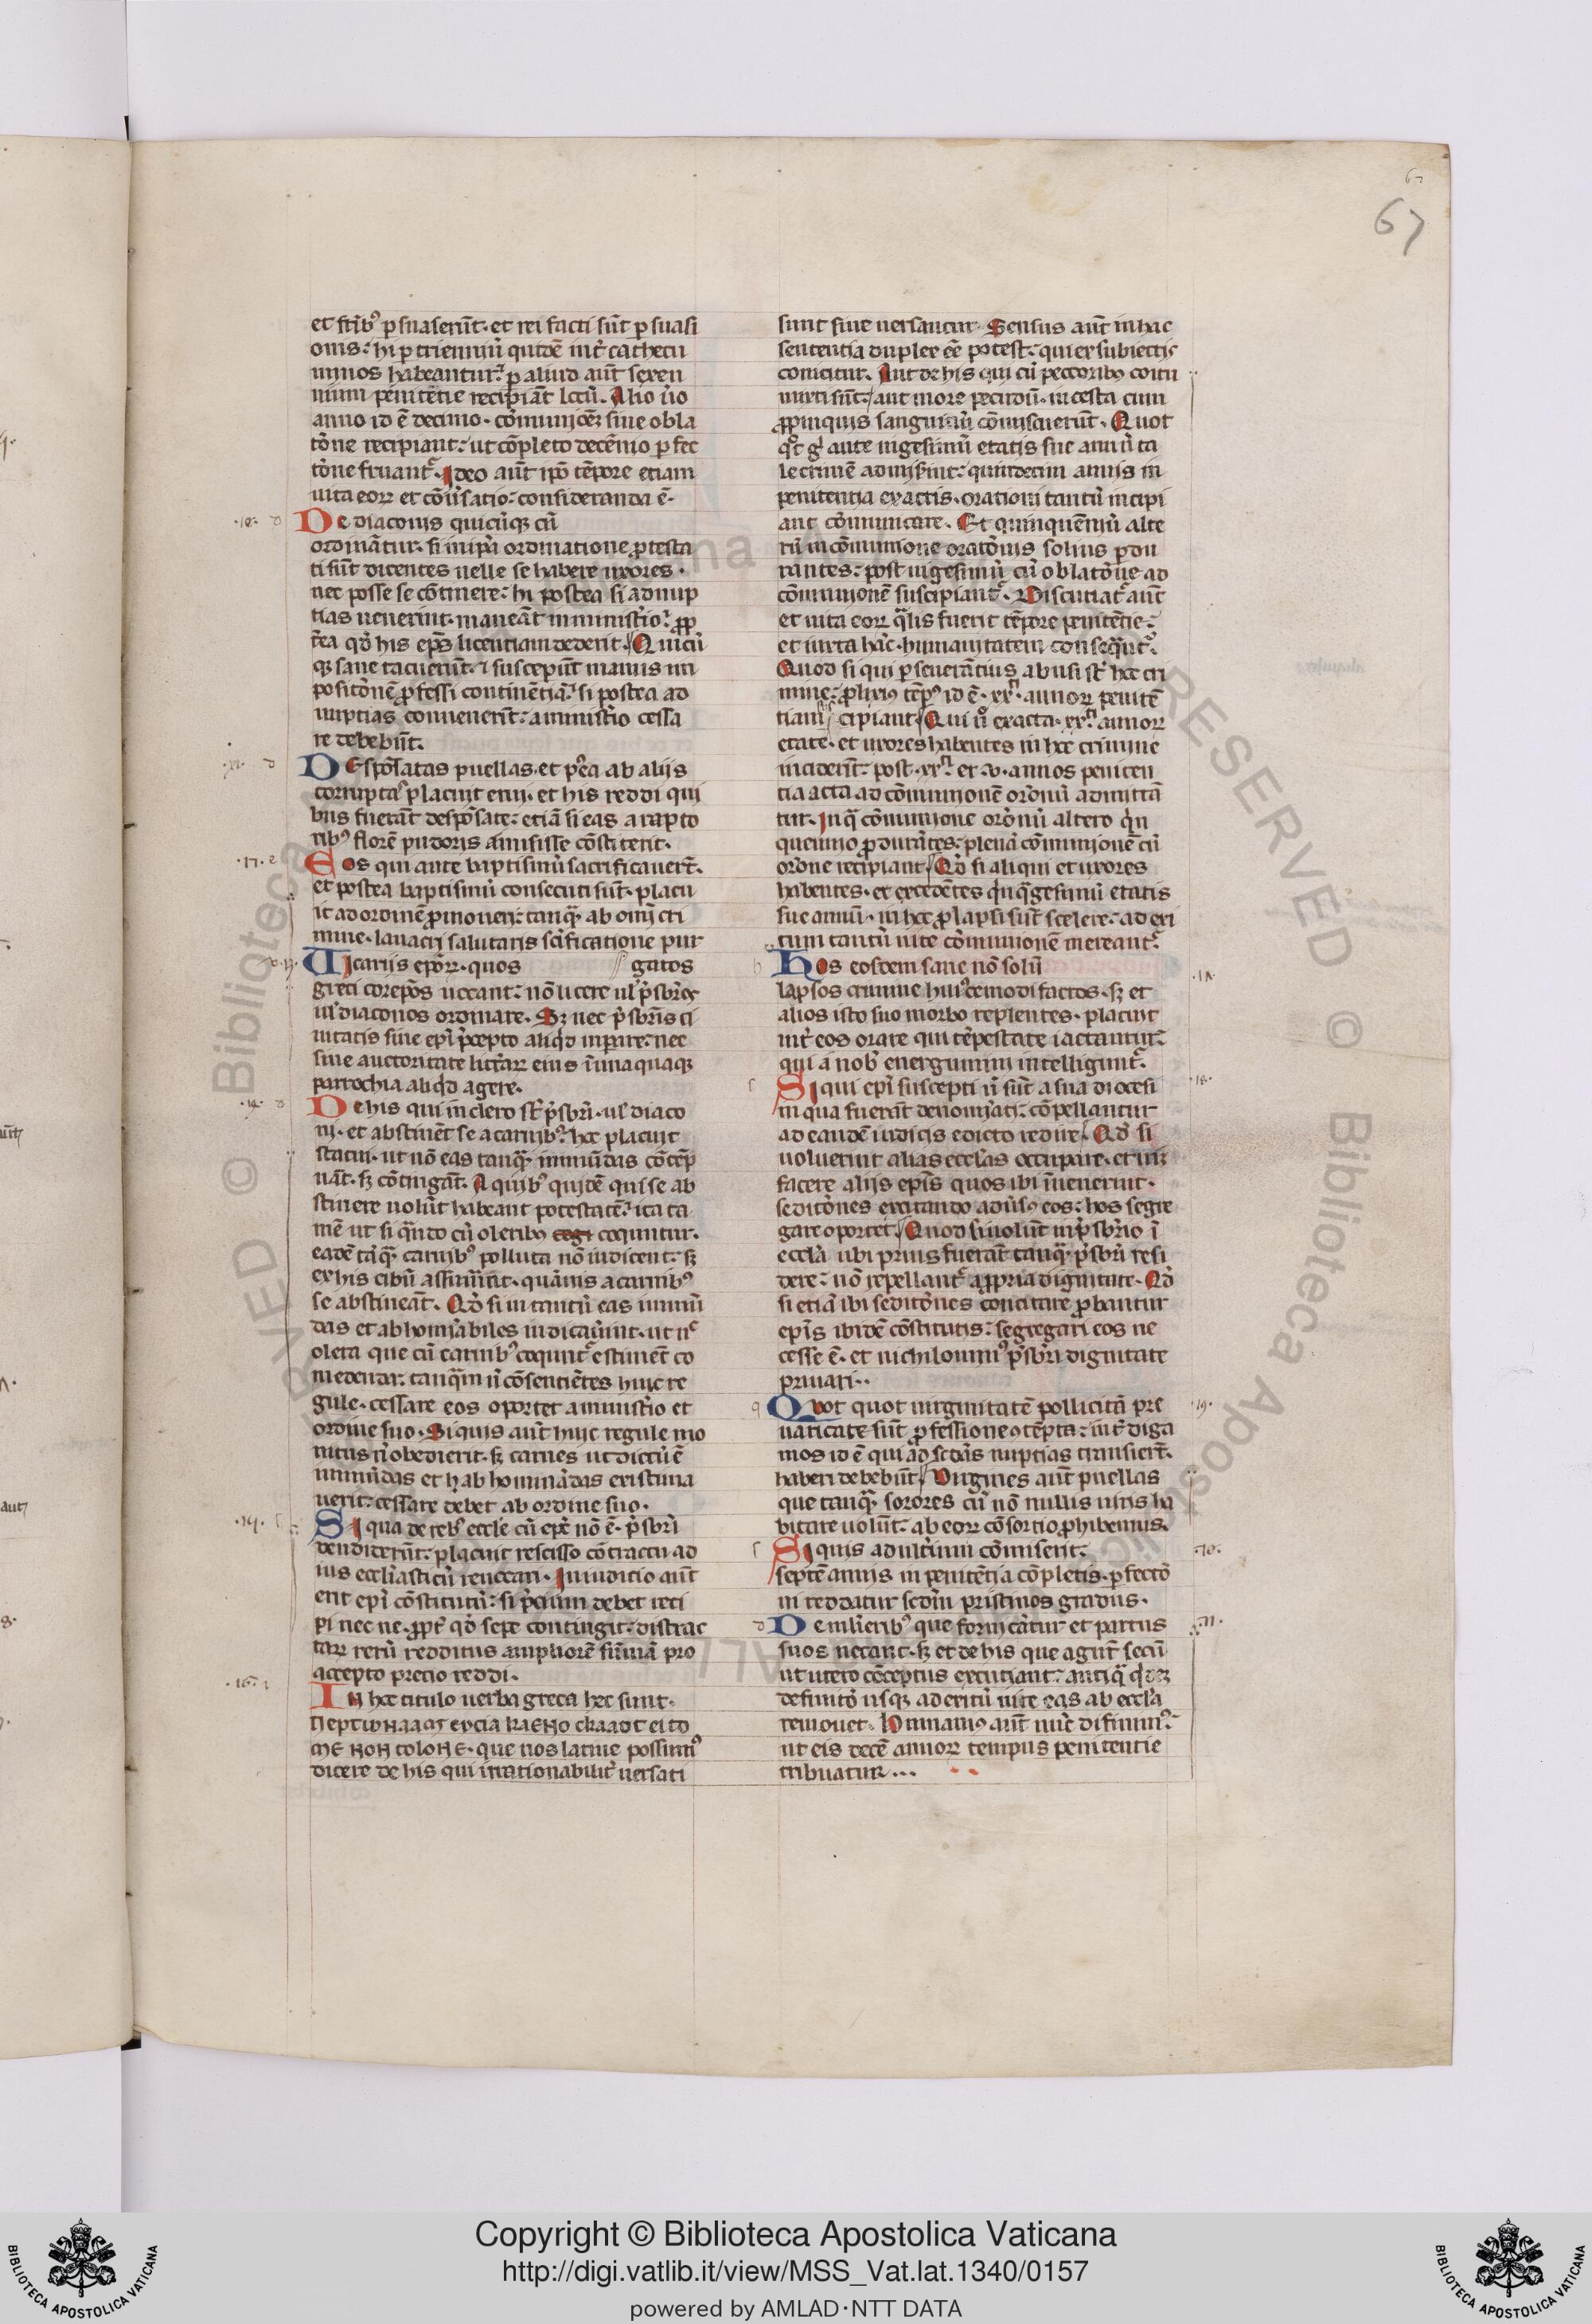 67
67
et fr̄ib᷒ ꝑsuaserūt. et rei facti sūt ꝑsuasi
onis: hi ꝑ trienniū quidē int̄ cathecu
minos habeantur: ꝑ aliud aūt sexen
nium penitētie recipiāt locū. Alio ũo
anno id ē decimo. cōmunicēꝫ sine obla
tōne recipiant: ut cōpleto decēnio ꝑfec
tōne fruant᷑. Ideo aūt ipō tēpore etiam
uita eoꝝ et cōũsatio: consideranda ē.
.10. d De diaconis quicūqꝫ cū
ordināntur. si in ipā ordinatione ꝓtesta
ti sūt dicentes uelle se habere uxores.
nec posse se cōtinere: hi postea si ad nup
tias uenerint. maneāt in ministio: ꝓp
tea qđ his ep̄s licentiam dederit. Quicū
qꝫ sane tacuerūt. ⁊ susceperūt manus im
positōnē ꝓfessi continētiā: si postea ad
nuptias conuenerīt: a ministio cessa
re debebūt.
.11. d Desponsatas puellas. et pꝰea ab aliis
corruptas placuit erui. et his reddi qui
bus fuerāt desponsate: etiā si eas a rapto
rib᷒ florē pudoris amisisse cōstiterit.
.12. e Eos qui ante baptismū sacrificauert̄.
et postea baptismū consecuti sūt. placu
it ad ordinē ꝓmoueri: tanq̄ ab omi cri
mine. lauacri salutaris scīficatione pur
gatos
.13. Uicariis epōꝝ. quos
greci corepōs uocant: nō licere ul̄ p̄sbr̄os
ul̄ diaconos ordinare. Sꝫ nec p̄sbr̄is ci
uitatis sine epī p̄cepto aliqd inpare: nec
sine auctoritate litt̄arꝝ eius ī unaquaqꝫ
parrochia aliqd agere.
.14. d De his qui in clero st̄ p̄sbr̄i. ul̄ diaco
ni. et abstinēt se a carnib᷒: hoc placuit
statui. ut nō eas tanq̄ inmūdas cōtēp
nāt. sꝫ cōtingāt. A quib᷒ quidē qui se ab
stinere uolūt habeant potestatē: ita ta
mē ut si qn̄do cū oleribus cogi coquntur.
eadē tāq̄ carnib᷒ polluta nō iudicent: sꝫ
ex his cibū assumāt. quāuis a carnib᷒
se abstineāt. Qđ si in tantū eas inmū
das et abhominabiles iudicauīnt. ut nͨ
olera que cū carnib᷒ coquntᷣ estiment co
medenda: tanq̄m ñ cōsentiētes huic re
gule. cessare eos oportet a ministio et
ordine suo. Si quis aūt huic regule mo
nitus ñ obedierit. sꝫ carnes ut dictū ē
inmūdas et hab hominādas existima
uerit: cessare debet ab ordine suo.
.15. Si qua de reb᷒ eccl̄e cū epc̄ nō ē. p̄sbr̄i
vendiderūt: placuit rescisso cōtractu ad
ius eccl̄iasticū reuocari. In iudicio aūt
erit epī cōstitutū: si p̄cium debet reci
pi nec ne. ꝓpt̄ qđ sepe contingit: distrac
tarꝝ rerū redditus ampliorē sūmā pro
accepto precio reddi.
.16. In hoc titulo uerba greca hec sunt.
que nos latine possum᷒
dicere de his qui irrationabilit̄ uersati
sunt siue uersantur. Sensus aūt in hac
sententia duplex eē potest: qui ex subiectis
conicitur. Aut de his qui cū peccoribus coitu
mixti sūt: aut more pecudū. incesta cum
ꝓpinquis sanguinū cōmiscuerūt. Quot
qͦt gͥ ante uigesimū etatis sue annū ta
le crimē admiserint: quindecim annis in
penitentia exactis. orationi tantū incipi
ant cōmunicare. Et quinquēniū alte
rū in cōmunione oratōnis solius ꝑdu
rantes: post uigesimū cū oblatōne ad
cōmunionē suscipiantᷣ. Discutiat᷑ aūt
et uita eoꝝ q̄lis fuerit tēpore penitētie:
et iuxta hāc. humanitatem consequāt᷑.
Quod si qui ꝑseuerātius abusi st̄ hoc cri
mine: ꝓlixius tēp᷒ id ē. xxͭͥ. annoꝝ penitē
tiam suscipiant. Qui ũ exacta. xxͭͥ. annoꝝ
etate. et uxores habentes in hoc crimine
inciderīt: post. xxͭͥ. et. v. annos peniten
tia acta ad cōmunionē orōnū admittā
tur. In q̄ cōmunione orōnū altero q̇n
quennio ꝓdurātes: plenā cōmunionē cū
orōne recipiant. Qđ si aliqui et uxores
habentes. et excedētes q̇nq̄gesimū etatis
sue annū. in hoc ꝓlapsi sūt scelere: ad exi
tum tantū uite cōmunionē mereantᷣ.
.17. h Hos eosdem sane nō solū
lapsos crimine huiᷤcemodi factos. sꝫ et
alios isto suo morbo replentes. placuit
int̄ eos orare qui tēpestate iactantur:
qui a nob᷒ energumini intelligunt᷑.
.18. s Si qui epī suscepti ñ sūt a sua diocesi
in qua fuerāt denomiati: cōpellantur
ad eandē iudicis edicto redire. Qđ si
uoluerint alias eccl̄as occupare. et uim
facere aliis epīs quos ibi īuenerint.
seditōnes excitando adūsus eos: hos segre
gare oportet. Quod si uolūt in p̄sbr̄io ī
eccl̄a ubi prius fuerāt tanq̄ p̄sbr̄i resi
dere: nō repellantᷣ a ꝓpria dignitate. Qđ
si etiā ibi seditōnes concitare ꝓbantur
epīs ibidē cōstitutis: segregari eos ne
cesse ē. et nichilomin᷒ p̄sbr̄i dignitate
priuari..
.19. q Quot quot uirginitatē pollicitā pre
uaricate sūt ꝓfessione ꝯtēpta: int̄ diga
mos id ē qui ad scd̄as nuptias transiert̄.
haberi debebūt. Uirgines aūt puellas
que tanq̄ sorores cū nō nullis uiris ha
bitare uolūt: ab eoꝝ cōsortio ꝓhibemus.
.20. s Si quis adulterium cōmiserit:
septē annis in penitētia cōpletis. ꝑfectō
ni reddatur sed̄m pristinos gradus.
.21. d De mlierib᷒ que fornicātur et partus
suos necant. sꝫ et de his que agūt secū
ut utero cōceptus excutiant: antiq̄ q̇dē
definitō usqꝫ ad exitū uite eas ab eccl̄a
remouet. Humanius aūt nūc difinim᷒:
ut eis decē annoꝝ tempus penitentie
tribuatur...
© Biblioteca Apostolica Vaticana
ALL RIGHTS RESERVED
Copyright © Biblioteca Apostolica Vaticana
http://digi.vatlib.it/view/MSS_Vat.lat.1340/0157
powered by AMLAD·NTT DATA
BIBLIOTECA APOSTOLICA VATICANA
BIBLIOTECA APOSTOLICA VATICANA